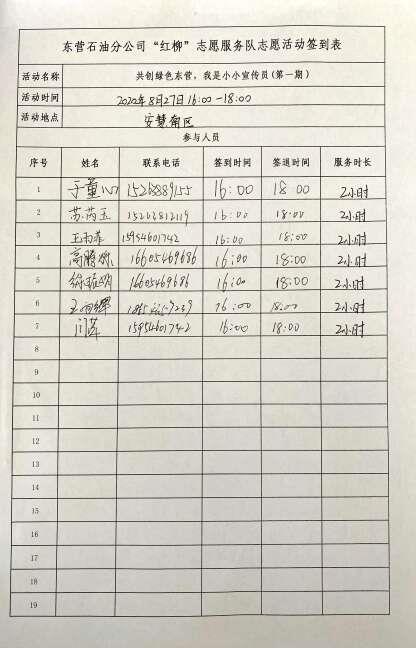 东营石油分公司“红柳”志愿服务队志愿活动签到表
活动名称 共创绿色东营，我是小小宣传员(第一期)
活动时间 2020年8月27日16:00-18:00
活动地点 安慧南区
参与人员
序号 姓名 联系电话 签到时间 签退时间 服务时长
1 于董心 15268889155 16:00 18:00 2小时
2 苏芮玉 15263812119 16:00 18:00 2小时
3 15954601742 16:00 18:00 2小时
4 高腾 16605469686 16:00 18:00 2小时
5 16605469686 16:00 18:00 2小时
6 16:00 18:00 2小时
7 15954601742 16:00 18:00 2小时
8
9
10
11
12
13
14
15
16
17
18
19